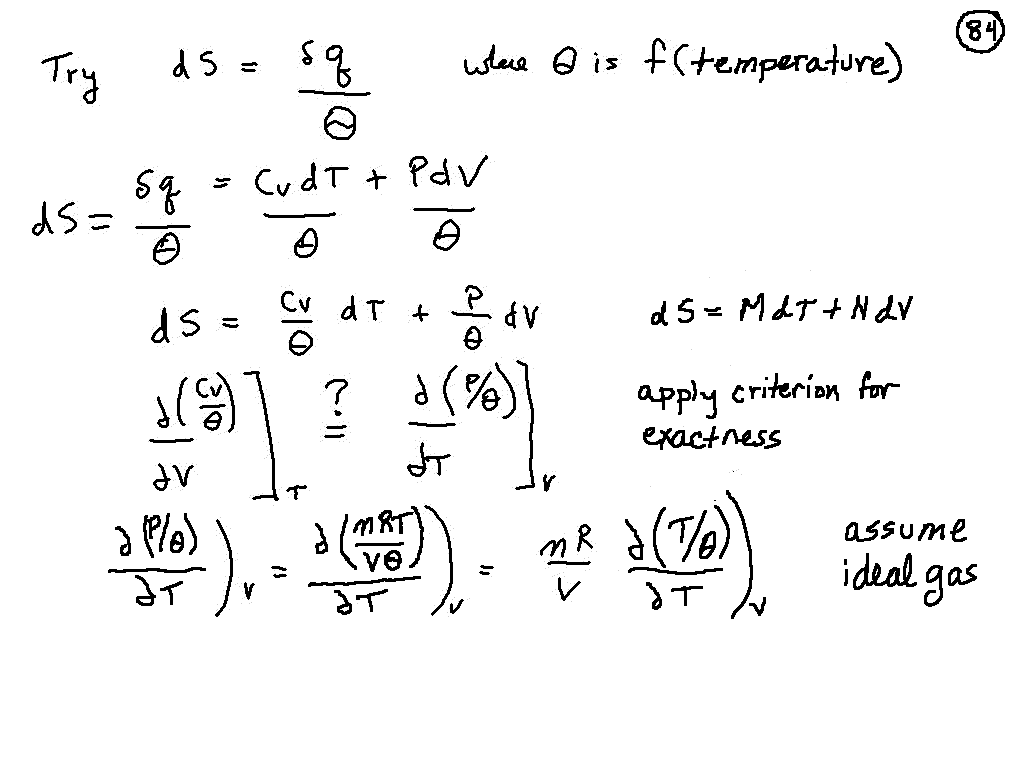 84
Try dS = δq/Θ where Θ is f(temperature)
dS = δq/Θ = CvdT/Θ + PdV/Θ
dS = Cv/Θ dT + P/Θ dV dS = MdT + NdV
∂(Cv/Θ)/∂V]T ?= ∂(P/Θ)/∂T]V apply criterion for
exactness
∂(P/Θ)/∂T)V = ∂(nRT/VΘ)/∂T)V = nR/V ∂(T/Θ)/∂T)V assume
ideal gas